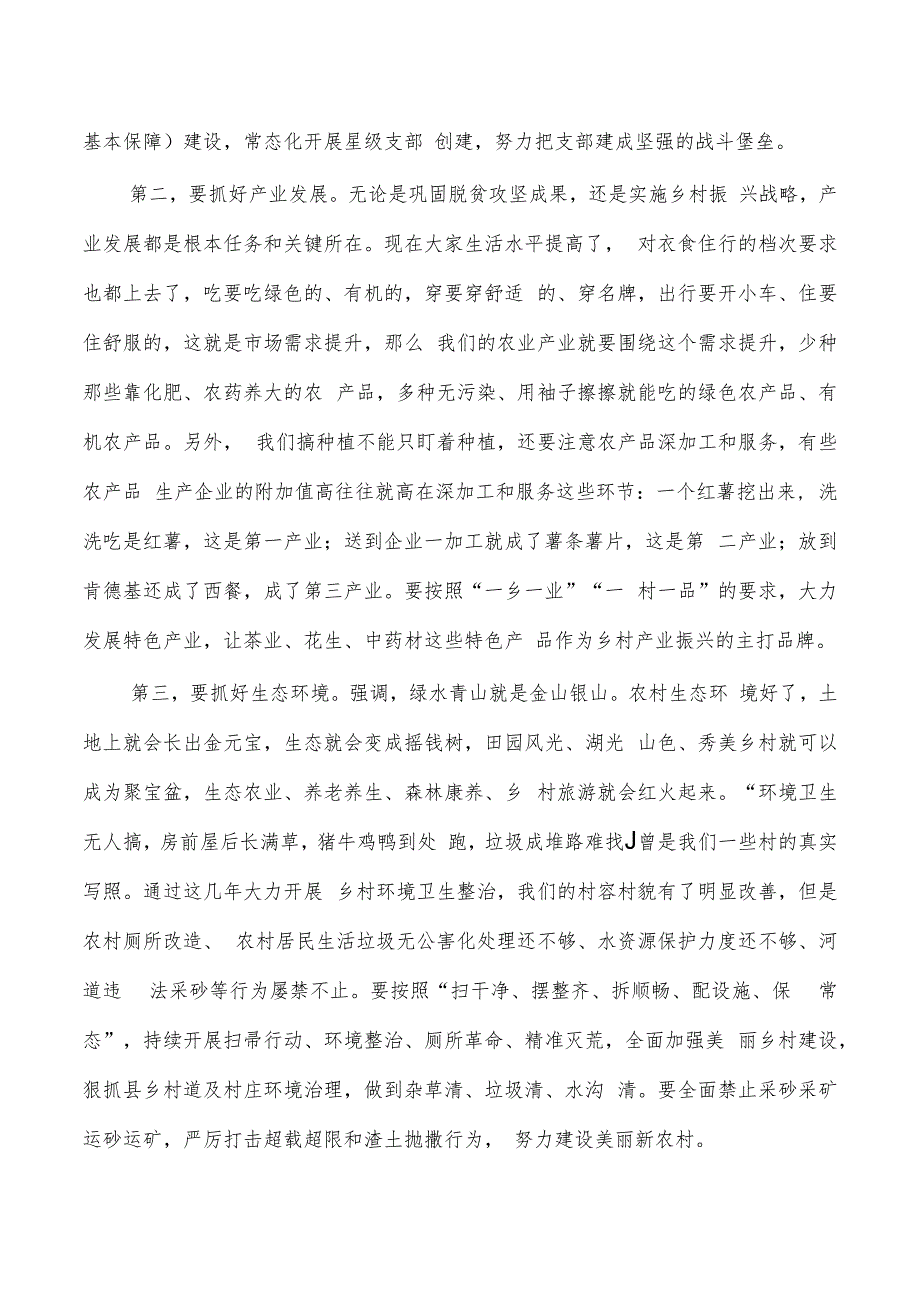 基本保障）建设，常态化开展星级支部 创建，努力把支部建成坚强的战斗堡垒。
第二，要抓好产业发展。无论是巩固脱贫攻坚成果，还是实施乡村振 兴战略，产
业发展都是根本任务和关键所在。现在大家生活水平提高了， 对衣食住行的档次要求
也都上去了，吃要吃绿色的、有机的，穿要穿舒适 的、穿名牌，出行要开小车、住要
住舒服的，这就是市场需求提升，那么 我们的农业产业就要围绕这个需求提升，少种
那些靠化肥、农药养大的农 产品，多种无污染、用袖子擦擦就能吃的绿色农产品、有
机农产品。另外， 我们搞种植不能只盯着种植，还要注意农产品深加工和服务，有些
农产品 生产企业的附加值高往往就高在深加工和服务这些环节：一个红薯挖出来，洗
洗吃是红薯，这是第一产业；送到企业一加工就成了薯条薯片，这是第 二产业；放到
肯德基还成了西餐，成了第三产业。要按照“一乡一业”“一 村一品”的要求，大力
发展特色产业，让茶业、花生、中药材这些特色产 品作为乡村产业振兴的主打品牌。
第三，要抓好生态环境。强调，绿水青山就是金山银山。农村生态环 境好了，土
地上就会长出金元宝，生态就会变成摇钱树，田园风光、湖光 山色、秀美乡村就可以
成为聚宝盆，生态农业、养老养生、森林康养、乡 村旅游就会红火起来。“环境卫生
无人搞，房前屋后长满草，猪牛鸡鸭到处 跑，垃圾成堆路难找J曾是我们一些村的真实
写照。通过这几年大力开展 乡村环境卫生整治，我们的村容村貌有了明显改善，但是
农村厕所改造、 农村居民生活垃圾无公害化处理还不够、水资源保护力度还不够、河
道违 法采砂等行为屡禁不止。要按照“扫干净、摆整齐、拆顺畅、配设施、保 常
态”，持续开展扫帚行动、环境整治、厕所革命、精准灭荒，全面加强美 丽乡村建设，
狠抓县乡村道及村庄环境治理，做到杂草清、垃圾清、水沟 清。要全面禁止采砂采矿
运砂运矿，严厉打击超载超限和渣土抛撒行为， 努力建设美丽新农村。